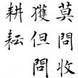 莫問收
獲但問
耕耘